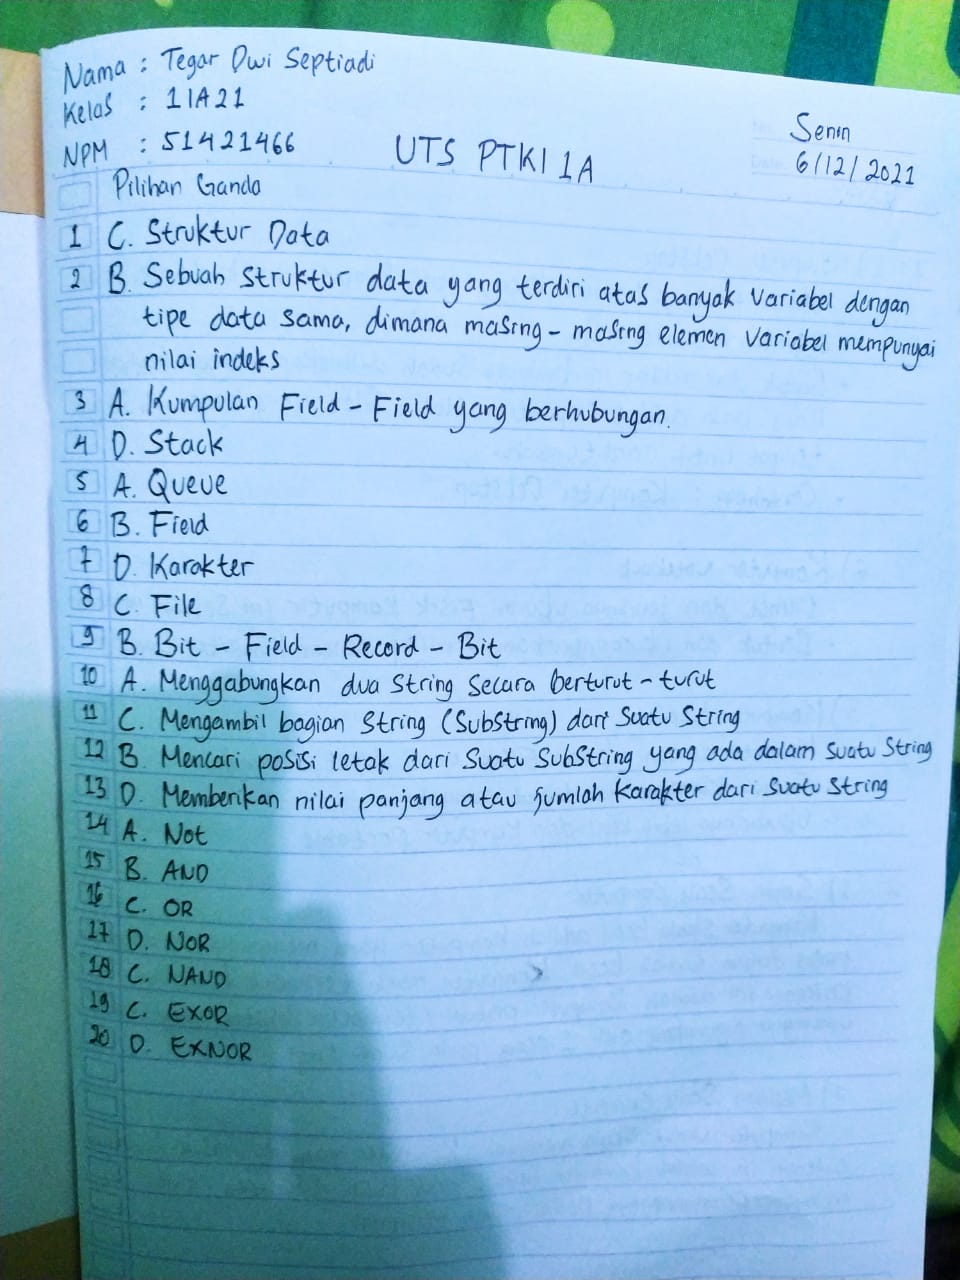 Nama : Tegar Dwi Septiadi
Kelas : 1IA21
NPM : 51421466
UTS PTKI 1A
Senin
6/12/2021
Pilihan Ganda
1 C. Struktur Data
2 B. Sebuah Struktur data yang terdiri atas banyak variabel dengan
tipe data sama, dimana masing - masing elemen variabel mempunyai
nilai indeks
3 A. Kumpulan Field - Field yang berhubungan.
4 D. Stack
5 A. Queue
6 B. Field
7 D. Karakter
8 C. File
9 B. Bit - Field - Record - Bit
10 A. Menggabungkan dua String Secara berturut - turut
11 C. Mengambil bagian String (SubString) dari Suatu String
12 B. Mencari posisi letak dari Suatu SubString yang ada dalam Suatu String
13 D. Memberikan nilai panjang atau jumlah Karakter dari Suatu String
14 A. Not
15 B. AND
16 C. OR
17 D. NOR
18 C. NAND
19 C. EXOR
20 D. EXNOR